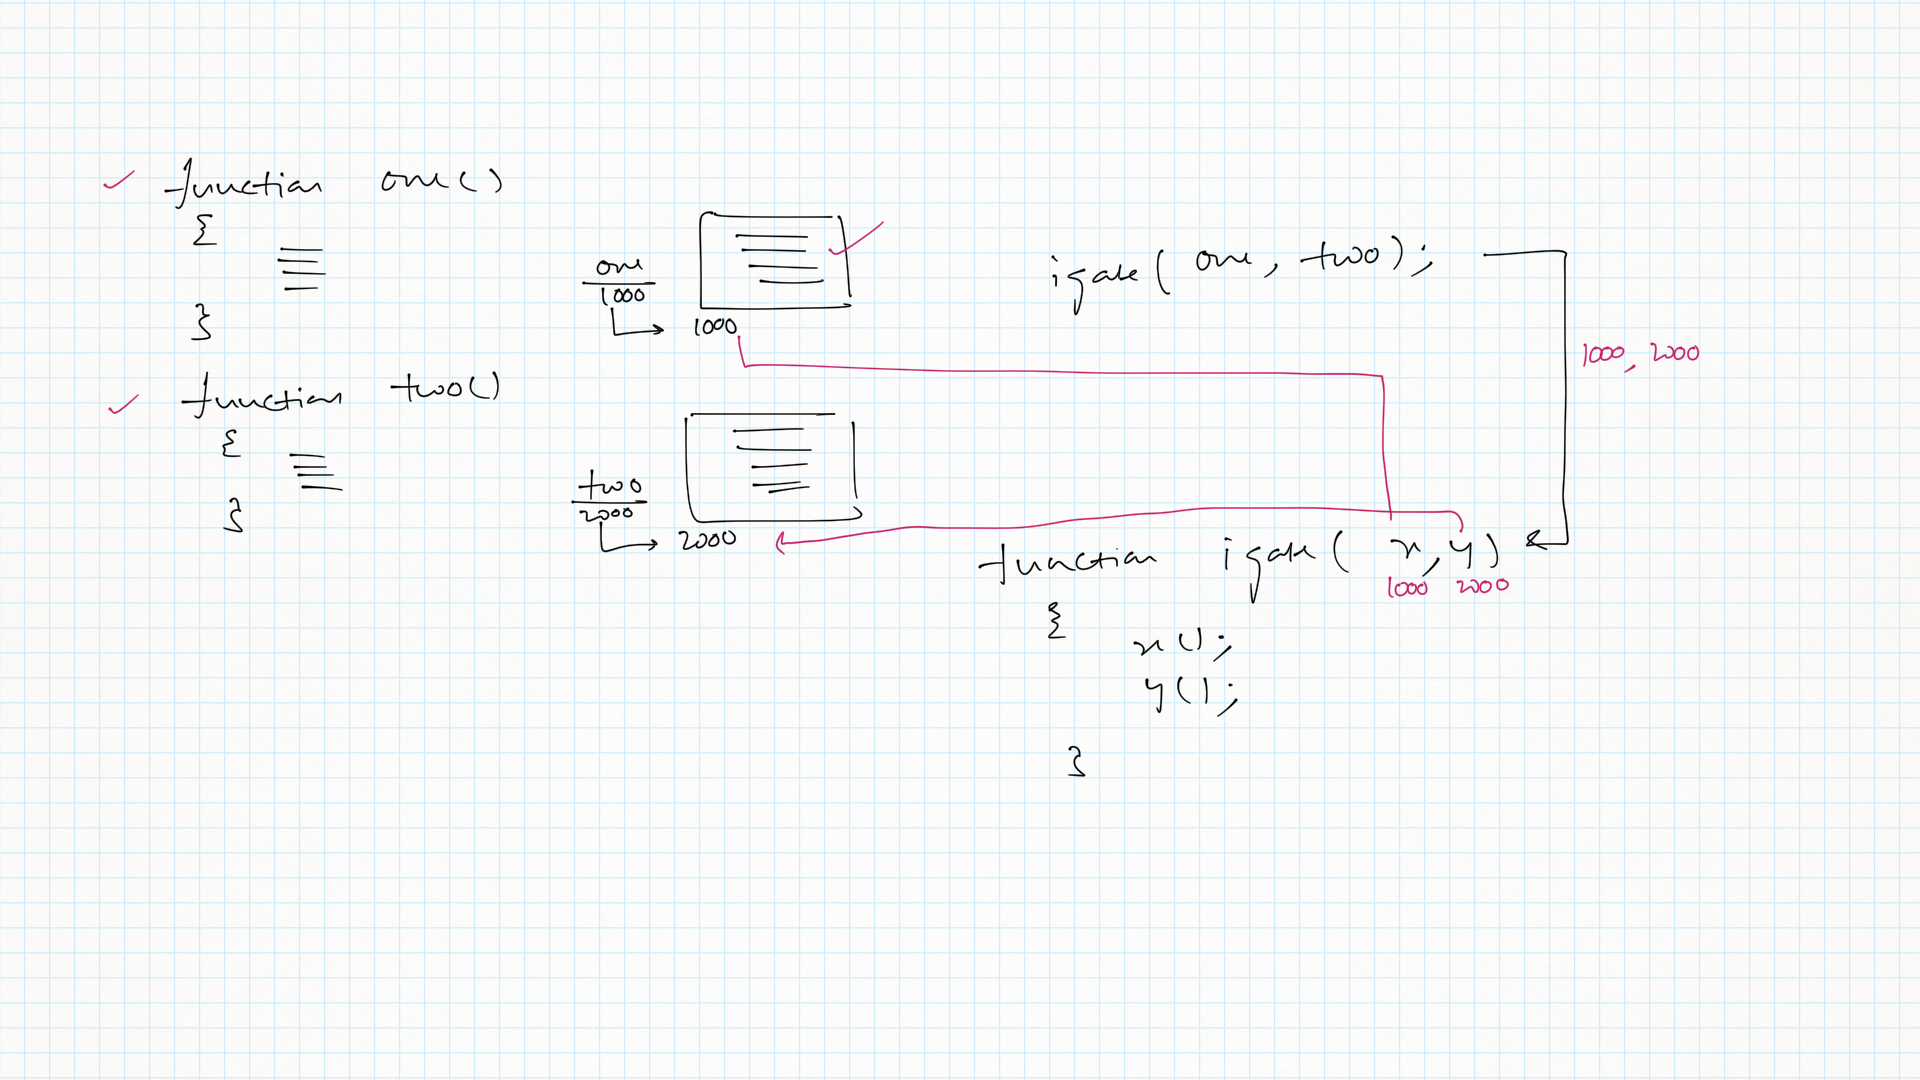 function one()
{
}
function two()
{
}
one
1000
1000
two
2000
2000
igate( one, two);
1000, 2000
function igate( x, y)
1000 2000
{
x();
y();
}